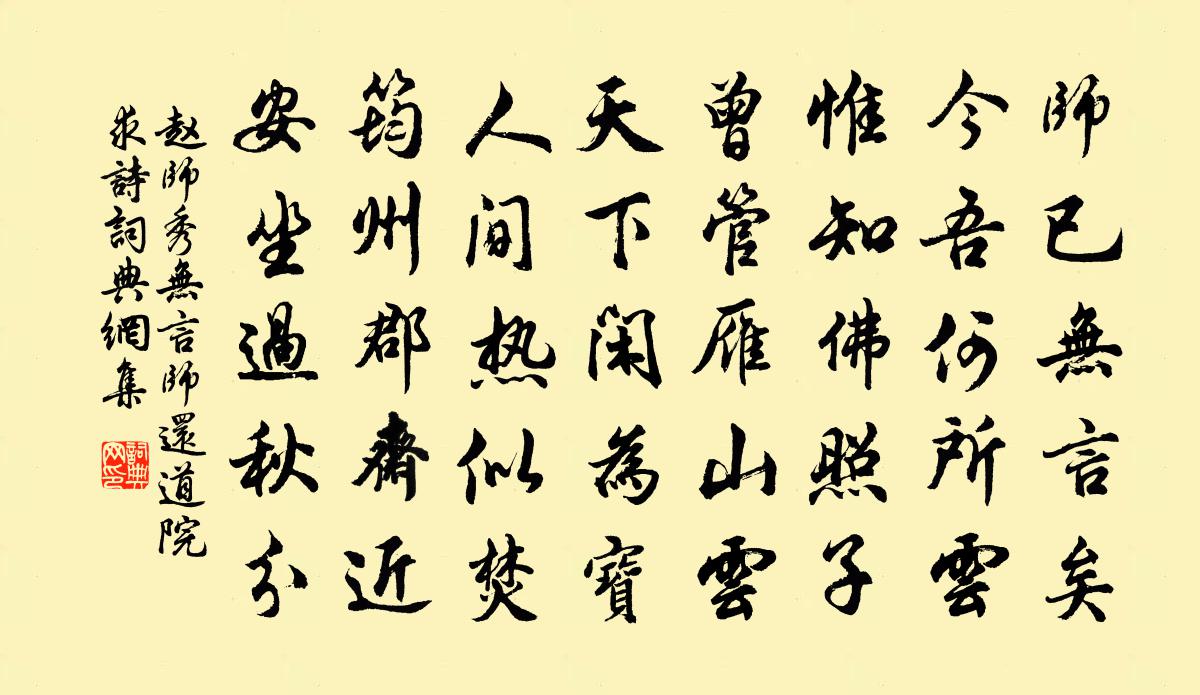 師已無言矣
今吾何所雲
惟知佛照子
曾管雁山雲
天下閑為寶
人间热似焚
筠州郡齋近
安坐過秋分
赵師秀無言師還道院
求詩詞典網集
詞典
网印